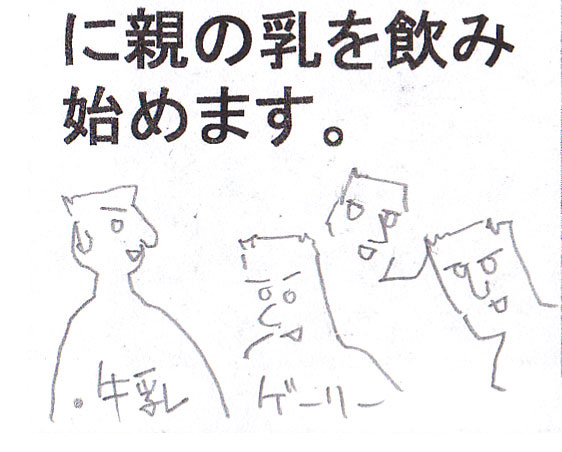 に親の乳を飲み
始めます。
・牛乳
ゲーリー